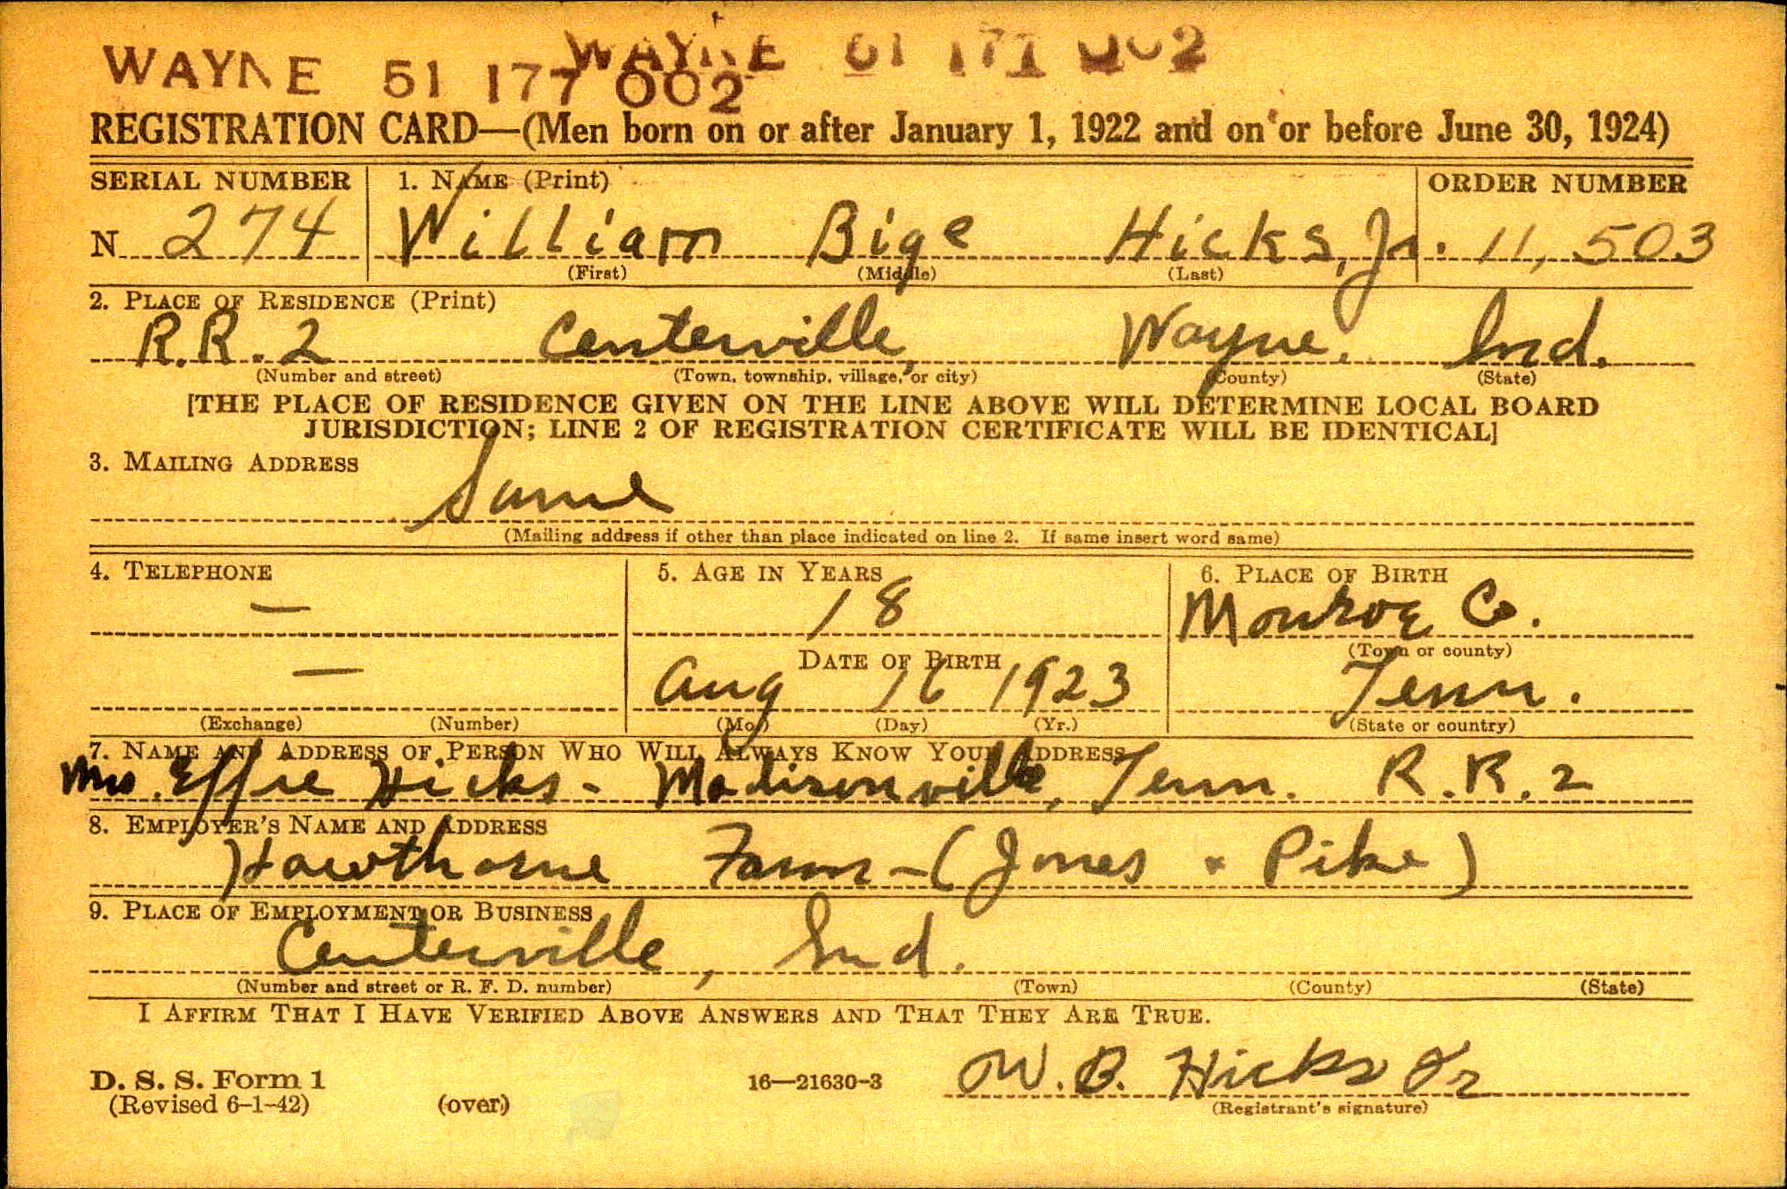 WAYNE 51 177 002
WAYNE 61 171 002
REGISTRATION CARD—(Men born on or after January 1, 1922 and on or before June 30, 1924)
SERIAL NUMBER 1. NAME (Print) ORDER NUMBER
N 274 William Bige Hicks, Jr. 11,503
(First) (Middle) (Last)
2. PLACE OF RESIDENCE (Print)
R.R. 2 Centerville, Wayne, Ind.
(Number and street) (Town, township, village, or city) (County) (State)
[THE PLACE OF RESIDENCE GIVEN ON THE LINE ABOVE WILL DETERMINE LOCAL BOARD
JURISDICTION; LINE 2 OF REGISTRATION CERTIFICATE WILL BE IDENTICAL]
3. MAILING ADDRESS
Same
(Mailing address if other than place indicated on line 2. If same insert word same)
4. TELEPHONE 5. AGE IN YEARS 6. PLACE OF BIRTH
— 18 Monroe Co.
DATE OF BIRTH (Town or county)
— Aug 16 1923 Tenn.
(Exchange) (Number) (Mo.) (Day) (Yr.) (State or country)
7. NAME AND ADDRESS OF PERSON WHO WILL ALWAYS KNOW YOUR ADDRESS
Mrs. Effie Hicks - Madisonville, Tenn. R.R. 2
8. EMPLOYER'S NAME AND ADDRESS
Hawthorne Farm - (Jones + Pike)
9. PLACE OF EMPLOYMENT OR BUSINESS
Centerville, Ind.
(Number and street or R. F. D. number) (Town) (County) (State)
I AFFIRM THAT I HAVE VERIFIED ABOVE ANSWERS AND THAT THEY ARE TRUE.
D. S. S. Form 1 16—21630-3 W. B. Hicks Jr
(Revised 6-1-42) (over) (Registrant's signature)